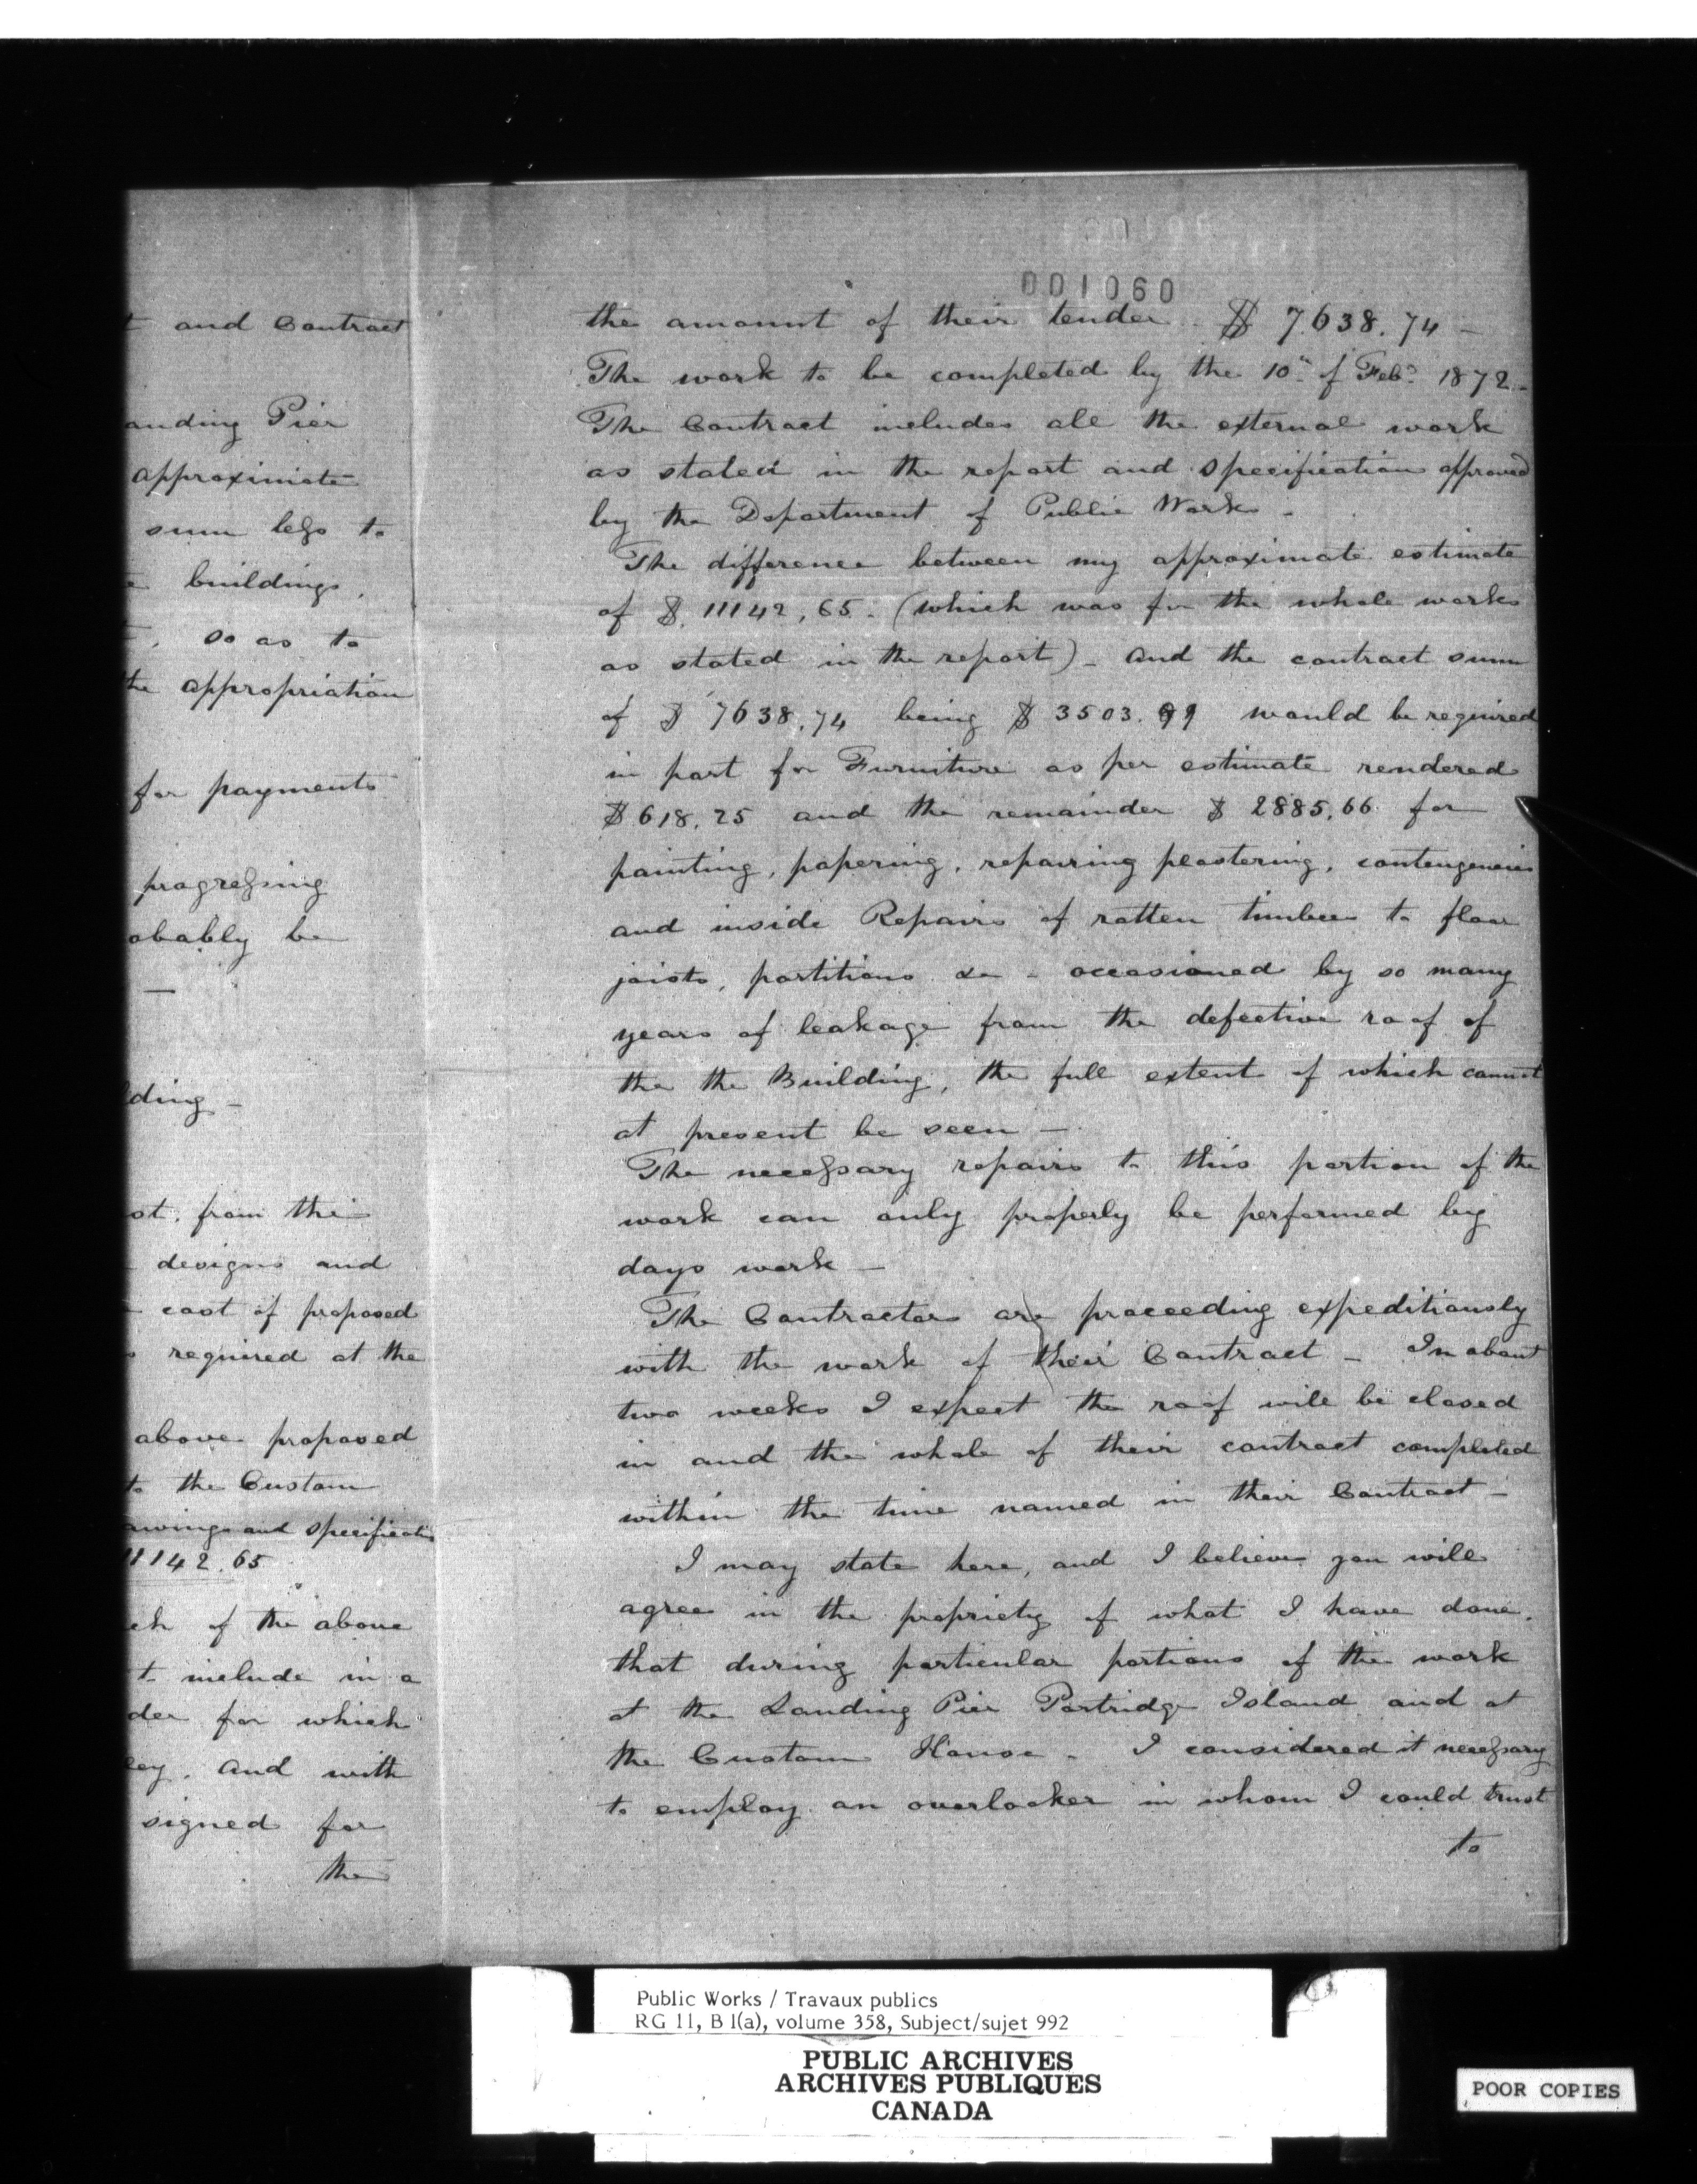 t and Contract
anding Pier
approximate
sum less to
buildings.
so as to
the appropriation
for payments
progressing
obably be
—
lding –
ot, from the
designs and
cost of proposed
s required at the
above proposed
to the Custom
awings and specificatio
11142.65
ch of the above
t include in a
der for which
ley. And with
signed for
the
001060
the amount of their tender $ 7638.74 –
The work to be completed by the 10th of Feby 1872 –
The Contract includes all the external work
as stated in the report and specification approved
by the Department of Public Works –
The difference between my approximate estimate
of $. 11142,65. (which was for the whole works
as stated in the report) – and the contract sum
of $ 7638.74 being $ 3503.91 would be required
in part for Furniture as per estimate rendered
$618.25 and the remainder $ 2885.66 for
painting, papering, repairing plastering, contengencies
and inside Repairs of rotten timbers to floor
joists, partitions &c – occasioned by so many
years of leakage from the defective roof of
the the Building, the full extent of which cannot
at present be seen –
The necessary repairs to this portion of the
work can only properly be performed by
days work –
The Contractors are proceeding expeditiously
with the work of their Contract – In about
two weeks I expect the roof will be closed
in and the whole of their contract completed
within the time named in their Contract –
I may state here, and I believe you will
agree in the propriety of what I have done.
that during particular portions of the work
at the Landing Pier Partridge Island and at
the Custom House – I considered it necessary
to employ an overlooker in whom I could trust
to
Public Works / Travaux publics
RG 11, B 1(a), volume 358, Subject/sujet 992
PUBLIC ARCHIVES
ARCHIVES PUBLIQUES
CANADA
POOR COPIES